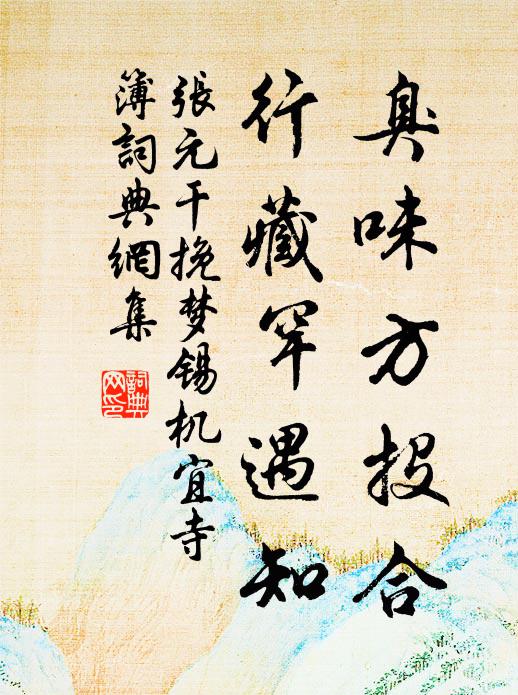 臭味方投合
行藏罕遇知
張元干挽梦锡机宜寺
簿詞典網集
詞典
网印